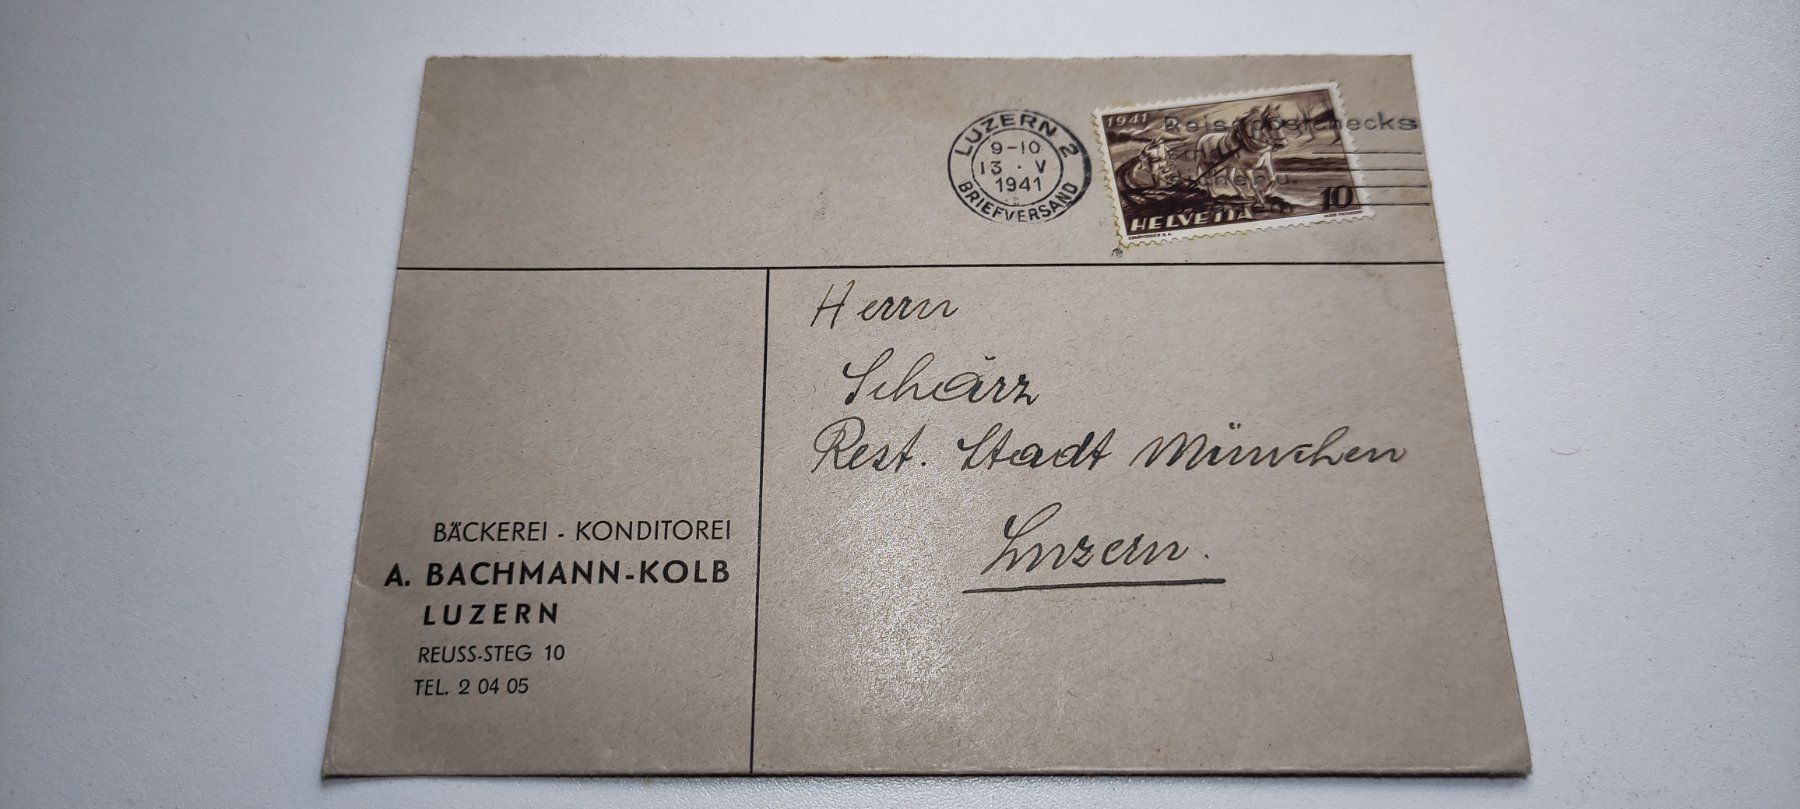 LUZERN 2
9-10
13 · V
1941
BRIEFVERSAND
Reisepostchecks
sind
sicher u.
1941
10
HELVETIA
COURVOISIER S.A.
Herrn
Schärz
Rest. Stadt München
Luzern.
BÄCKEREI - KONDITOREI
A. BACHMANN-KOLB
LUZERN
REUSS-STEG 10
TEL. 2 04 05